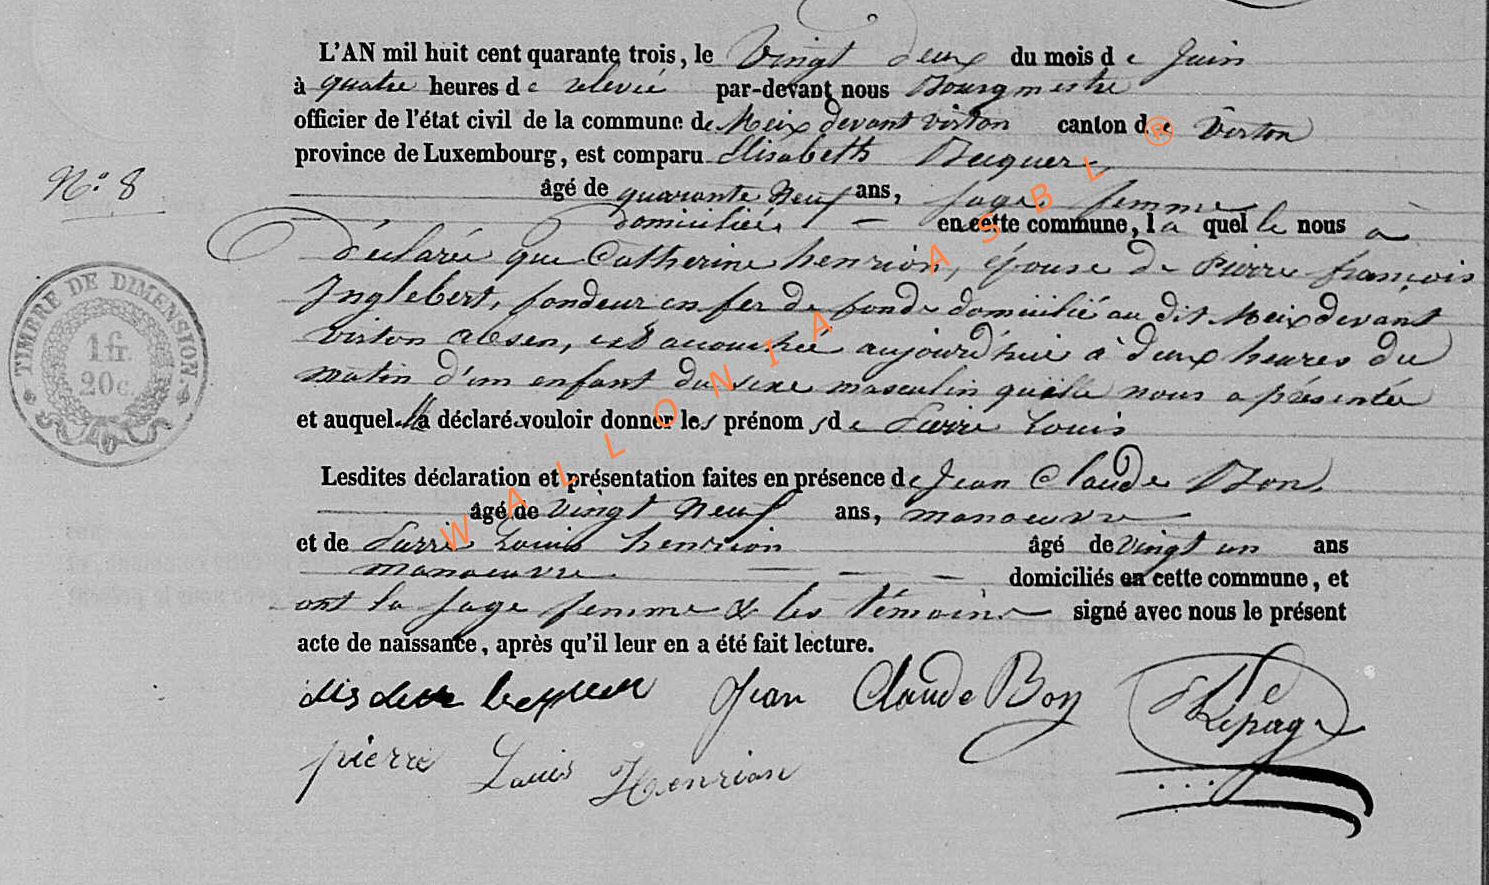 L'AN mil huit cent quarante trois, le Vingt deux du mois de Juin
à quatre heures de relevée par-devant nous Bourgmestre
officier de l'état civil de la commune de Meix devant virton canton de Virton
province de Luxembourg, est comparu Elisabeth
N.° 8
âgé de quarante Neuf ans, sage femme
domiciliée en cette commune, la quelle nous a
déclarée que Catherine henrion, épouse de Pierre françois
Inglebert, fondeur en fer de fonde domicilié au dit Meix devant
virton absen, est accouchée aujourd'hui à deux heures du
matin d'un enfant du sexe masculin qu'elle nous a présentée
et auquel elle a déclaré vouloir donner les prénoms de Pierre Louis
TIMBRE DE DIMENSION
1 fr.
20 c.
Lesdites déclaration et présentation faites en présence de Jean Claude Bon,
âgé de Vingt Neuf ans, manoeuvre
et de Pierre Louis henrion âgé de vingt un ans
manoeuvre. domiciliés en cette commune, et
ont la sage femme & les témoins signé avec nous le présent
acte de naissance, après qu'il leur en a été fait lecture.
Jean Claude Bon
Lepage
pierre Louis Henrion
WALLONIA ASBL ®